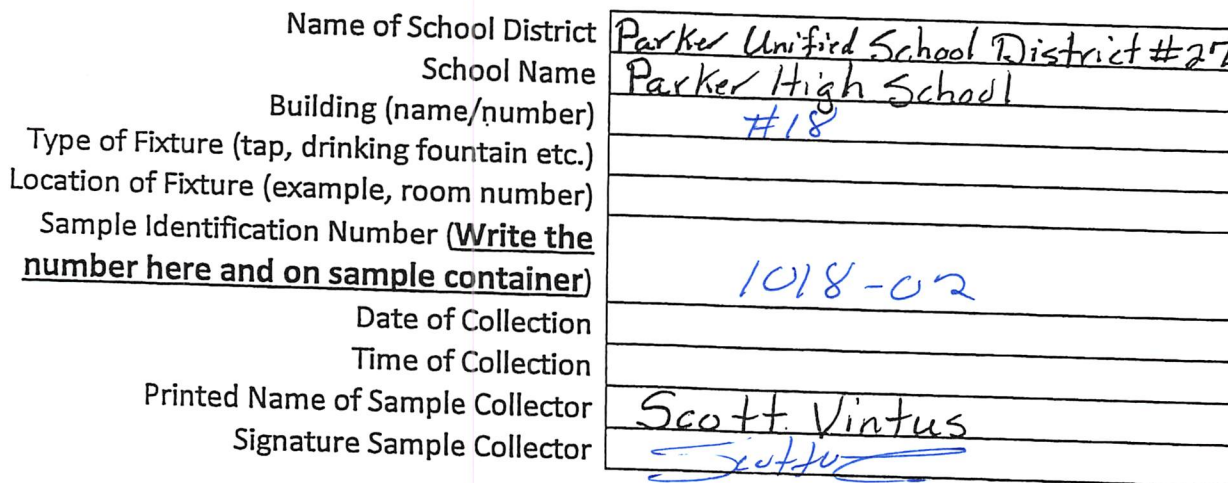 Name of School District Parker Unified School District #27
School Name Parker High School
Building (name/number) #18
Type of Fixture (tap, drinking fountain etc.)
Location of Fixture (example, room number)
Sample Identification Number (Write the
number here and on sample container) 1018-02
Date of Collection
Time of Collection
Printed Name of Sample Collector Scott Vintus
Signature Sample Collector